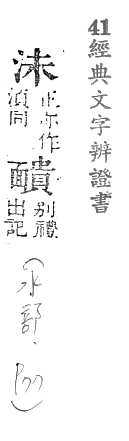 41 經典文字辨證書
沬
正亦作
湏同
靧
別禮
出記
(水部.